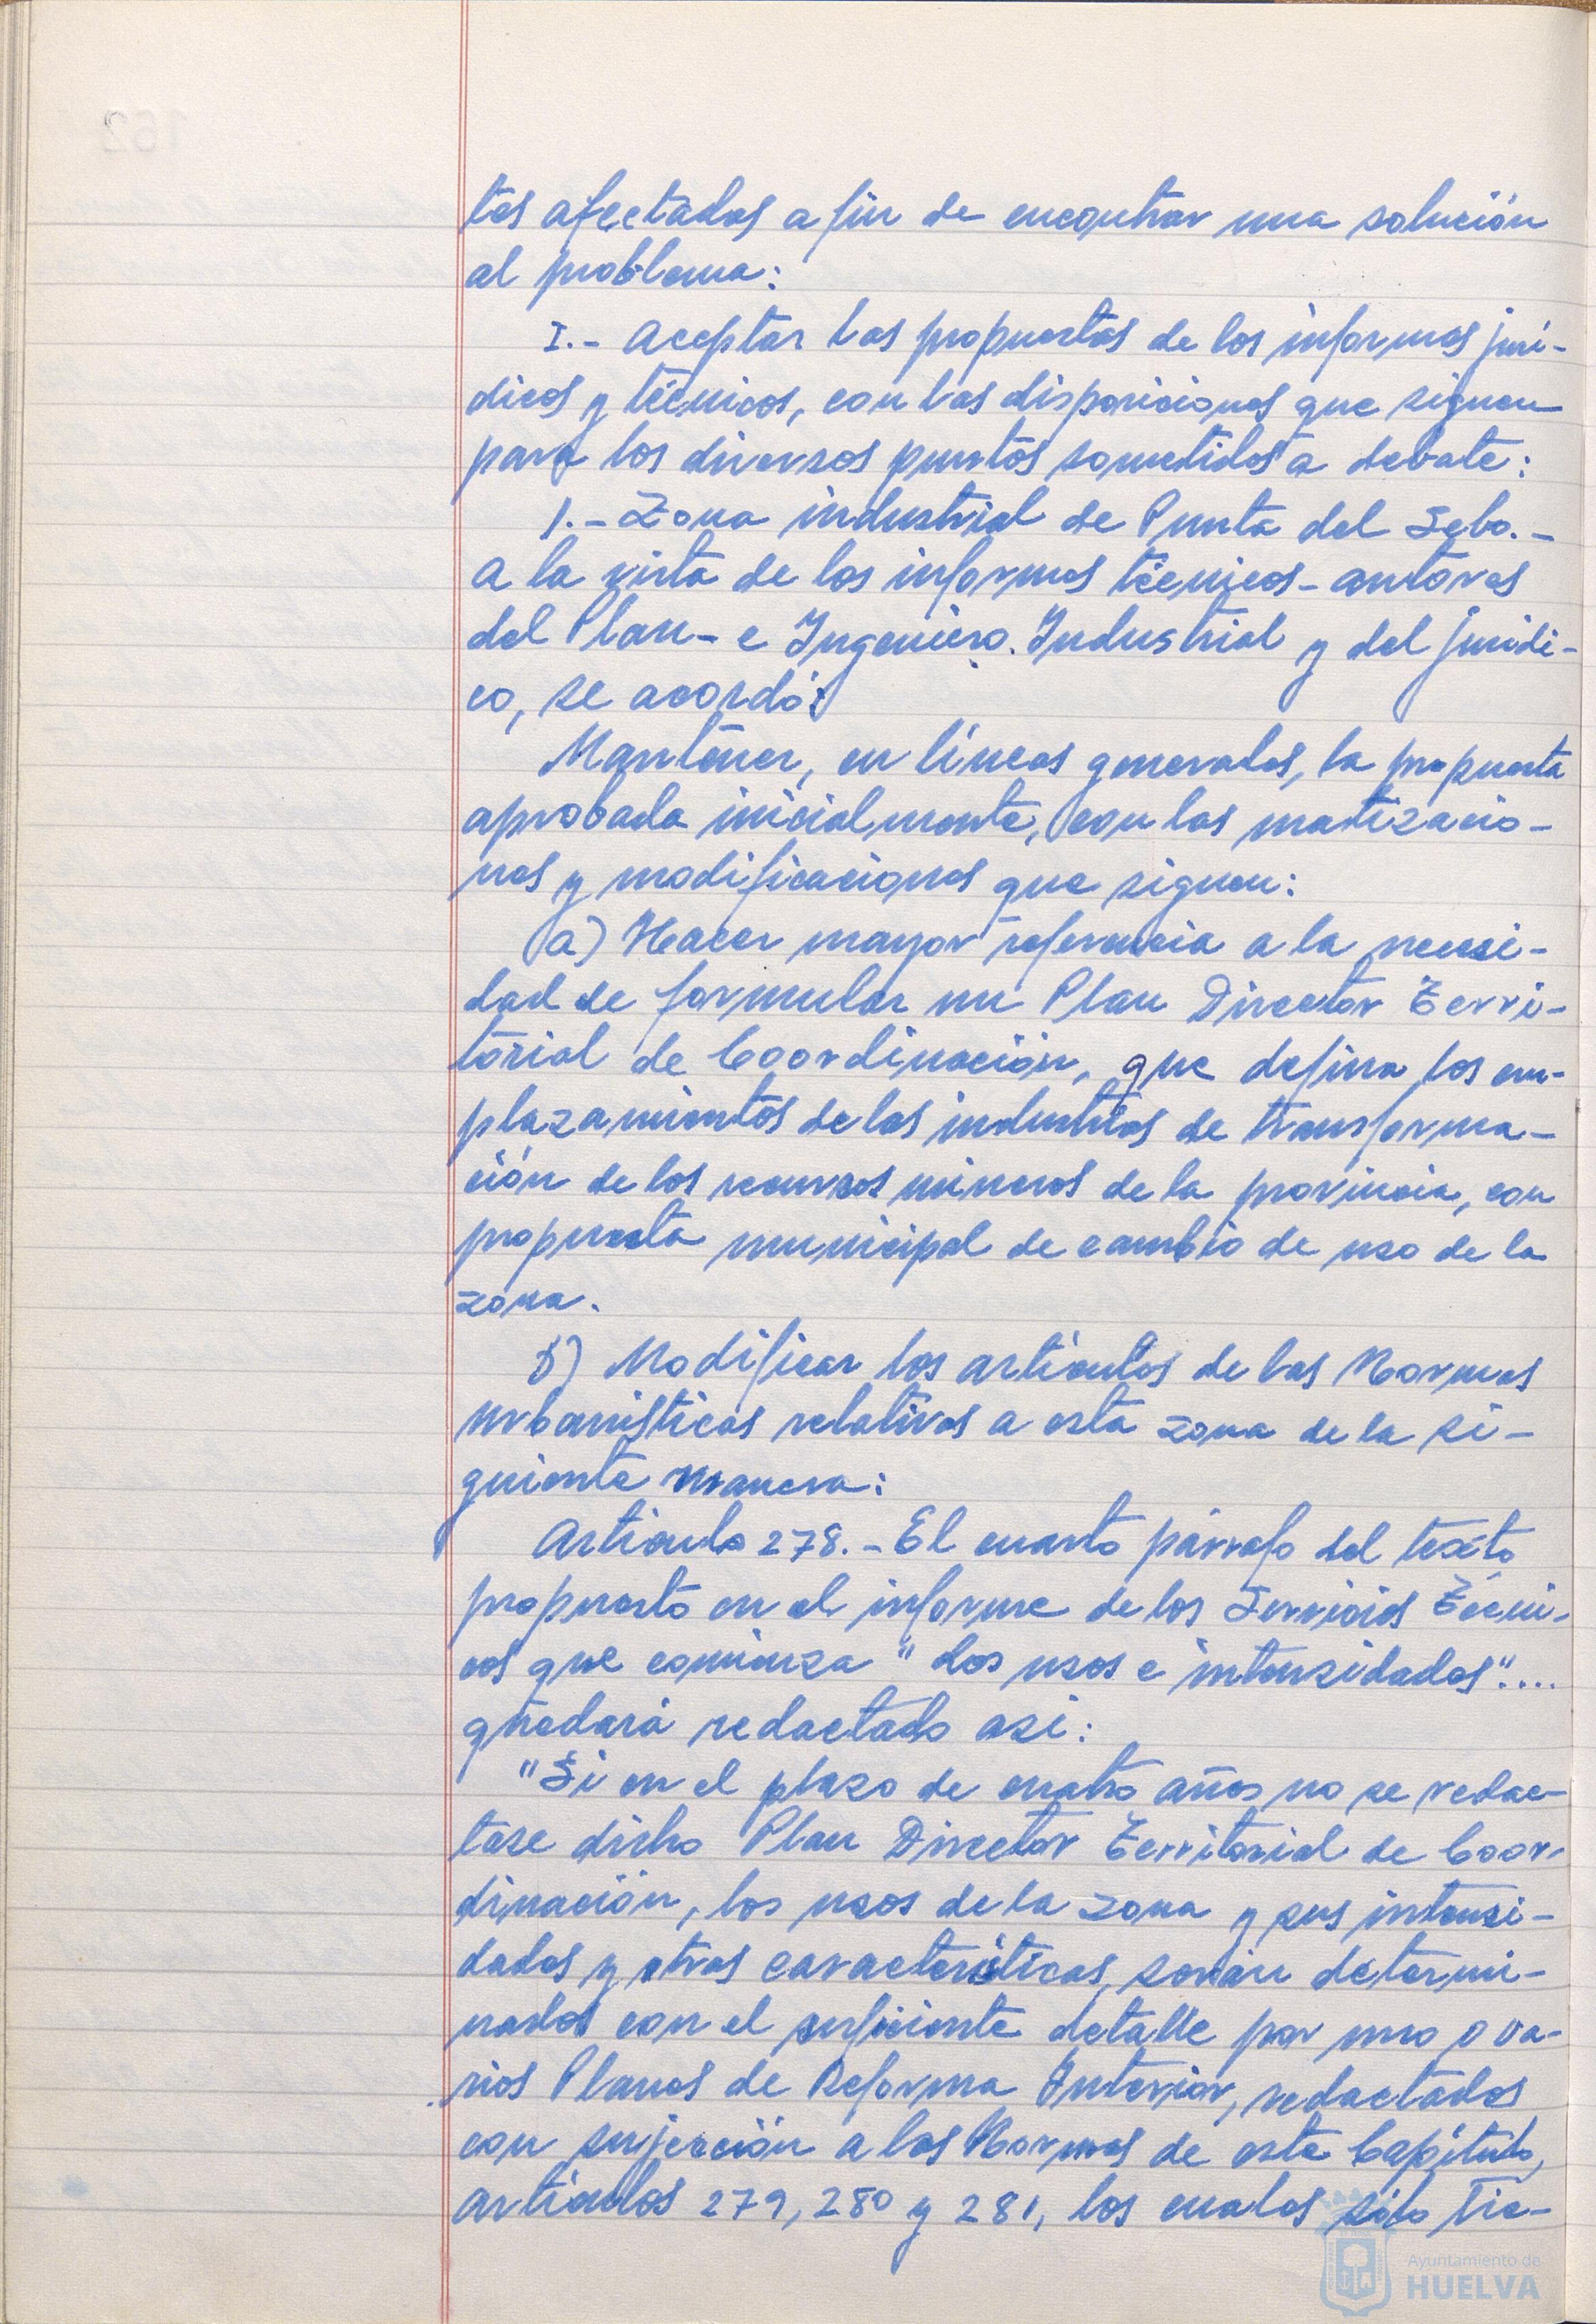 tos afectados a fin de encontrar una solución
al problema:
I.- Aceptar las propuestas de los informes jurí-
dicos y técnicos, con las disposiciones que siguen
para los diversos puntos sometidos a debate:
1.- Zona industrial de Punta del Sebo.-
A la vista de los informes técnicos-autores
del Plan- e Ingeniero Industrial y del jurídi-
co, se acordó:
Mantener, en líneas generales, la propuesta
aprobada inicialmente, con las matizacio-
nes y modificaciones que siguen:
a) Hacer mayor referencia a la necesi-
dad de formular un Plan Director Terri-
torial de Coordinación, que defina los em-
plazamientos de las industrias de transforma-
ción de los recursos mineros de la provincia, con
propuesta municipal de cambio de uso de la
zona.
b) Modificar los artículos de las Normas
urbanísticas relativos a esta zona de la si-
guiente manera:
Artículo 278.- El cuarto párrafo del texto
propuesto en el informe de los Servicios Técni-
cos que comienza "Los usos e intensidades"....
quedará redactado así:
"Si en el plazo de cuatro años no se redac-
tase dicho Plan Director Territorial de Coor-
dinación, los usos de la zona y sus intensi-
dades y otras características, serán determi-
nados con el suficiente detalle por uno o va-
rios Planes de Reforma Interior, redactados
con sujección a las Normas de este Capítulo,
artículos 279, 280 y 281, los cuales sólo tie-
Ayuntamiento de
HUELVA
162